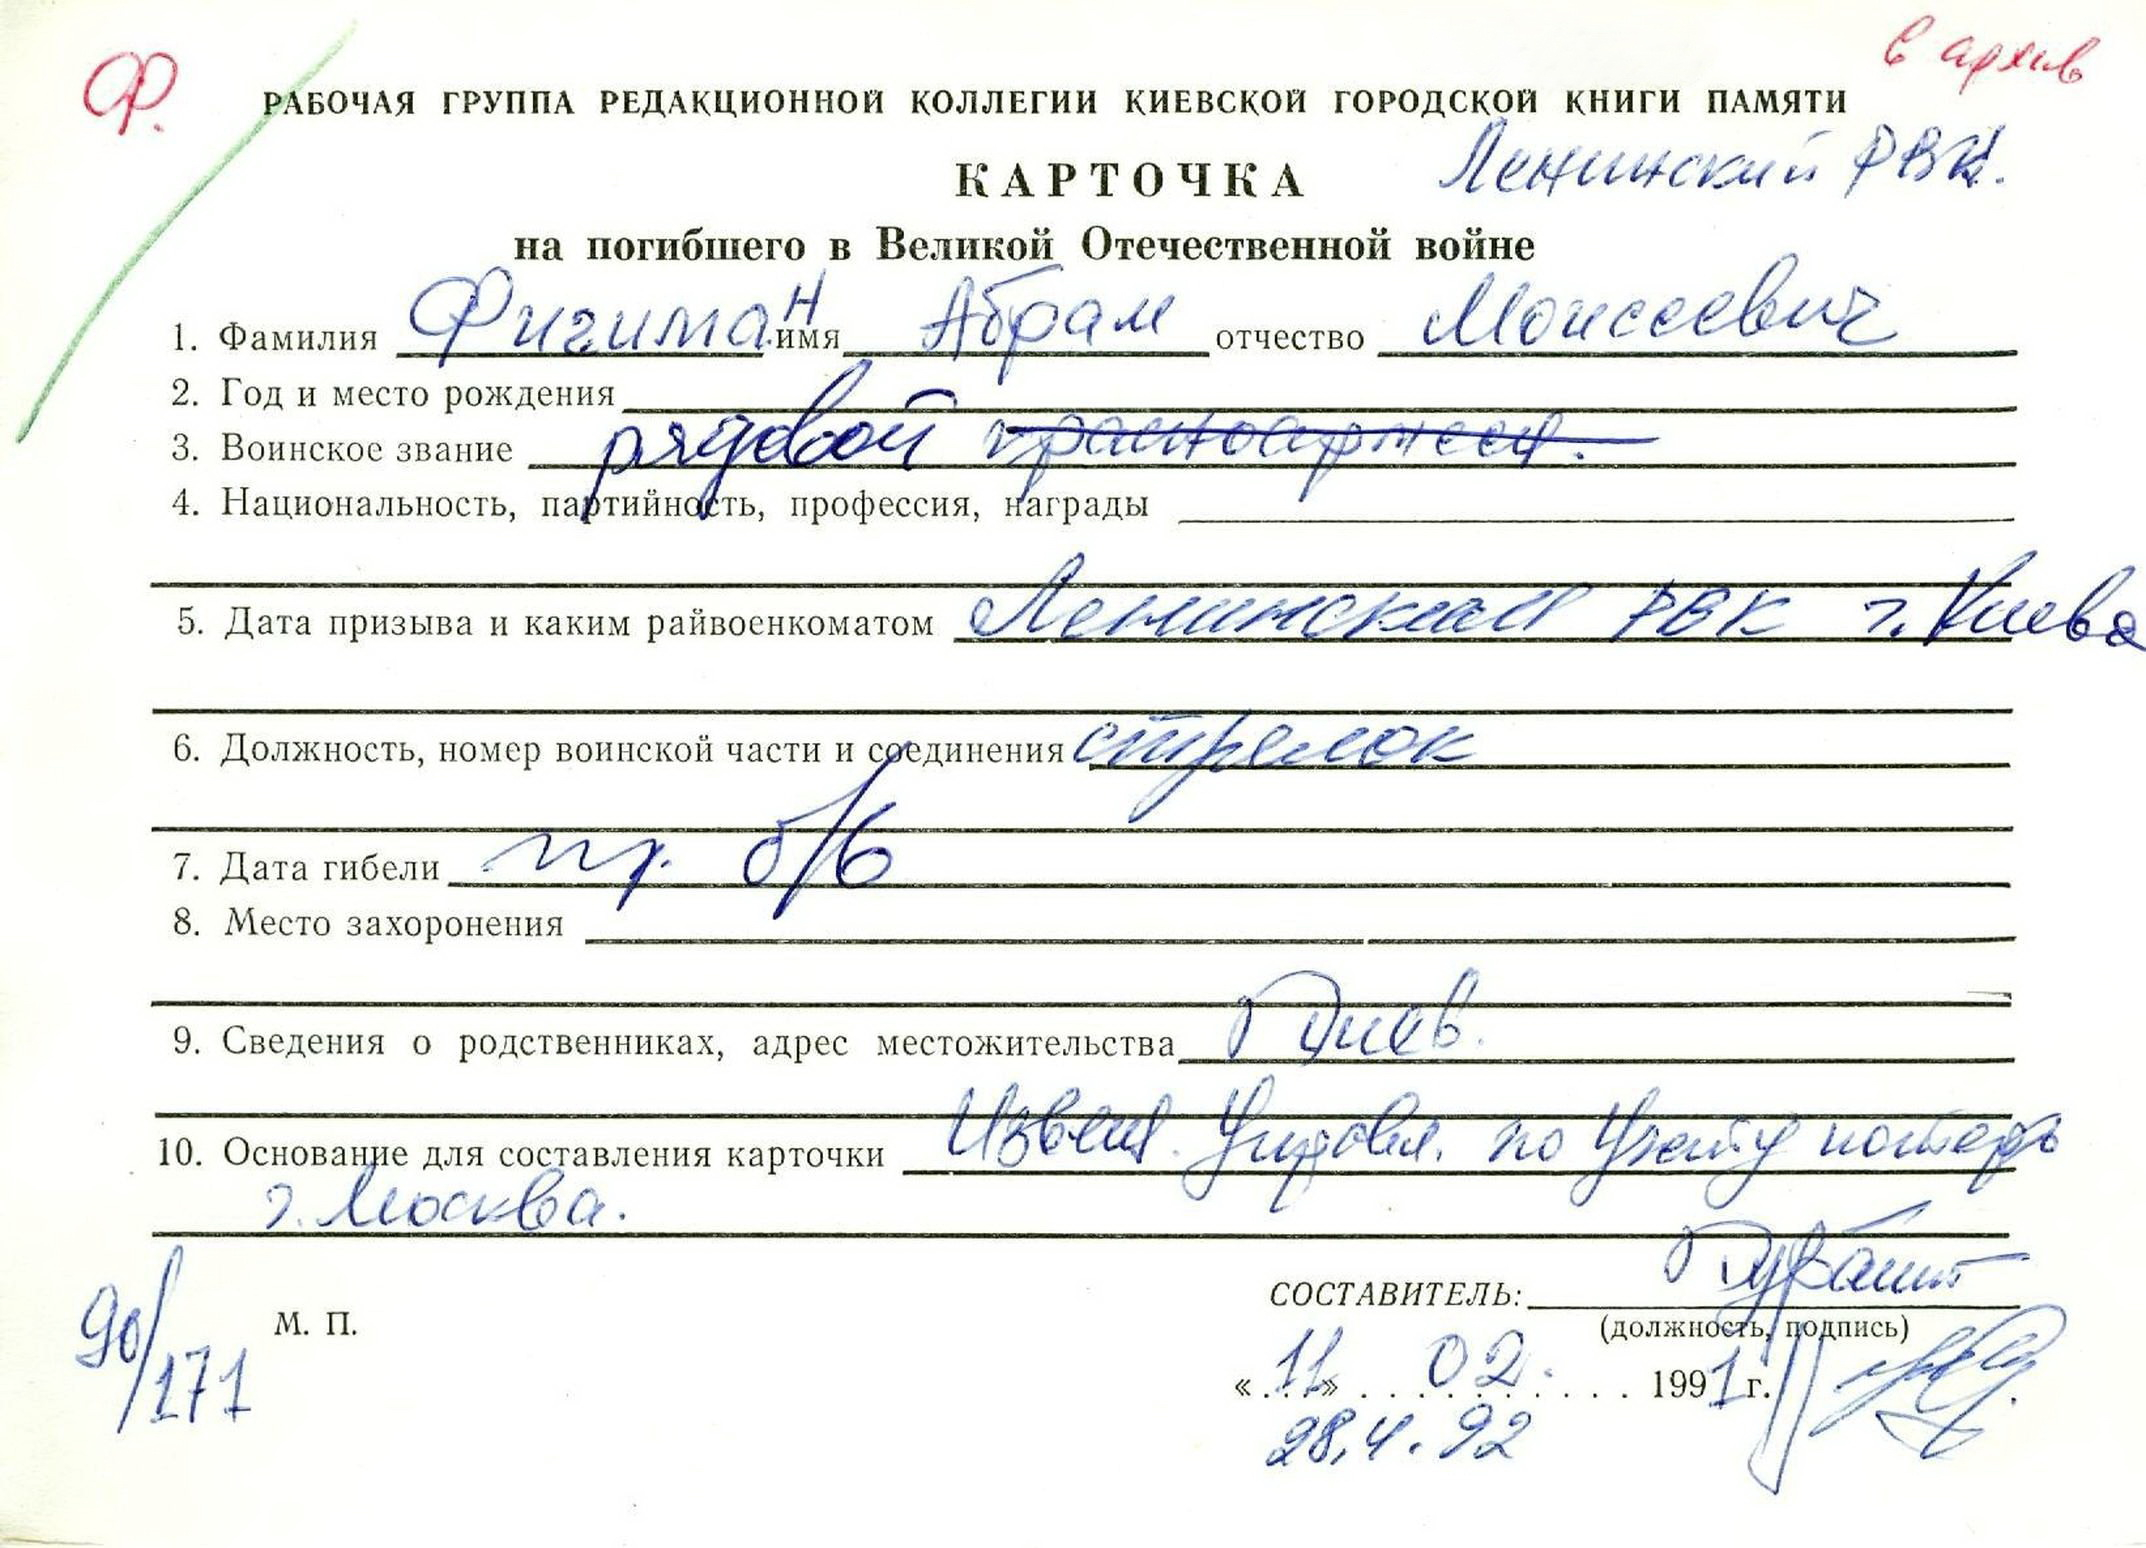 Ф.
в архив
РАБОЧАЯ ГРУППА РЕДАКЦИОННОЙ КОЛЛЕГИИ КИЕВСКОЙ ГОРОДСКОЙ КНИГИ ПАМЯТИ
КАРТОЧКА Ленинский РВК.
на погибшего в Великой Отечественной войне
1. Фамилия Фигиман имя Абрам отчество Моисеевич
2. Год и место рождения
3. Воинское звание рядовой красноармеец.
4. Национальность, партийность, профессия, награды
5. Дата призыва и каким райвоенкоматом Ленинский РВК г. Киева
6. Должность, номер воинской части и соединения стрелок
7. Дата гибели пр. б/в
8. Место захоронения
9. Сведения о родственниках, адрес местожительства
10. Основание для составления карточки Извещ. по потерь
г. Москва.
90/171
М. П.
СОСТАВИТЕЛЬ:
(должность, подпись)
«11» 02. 1991 г.
28.4.92